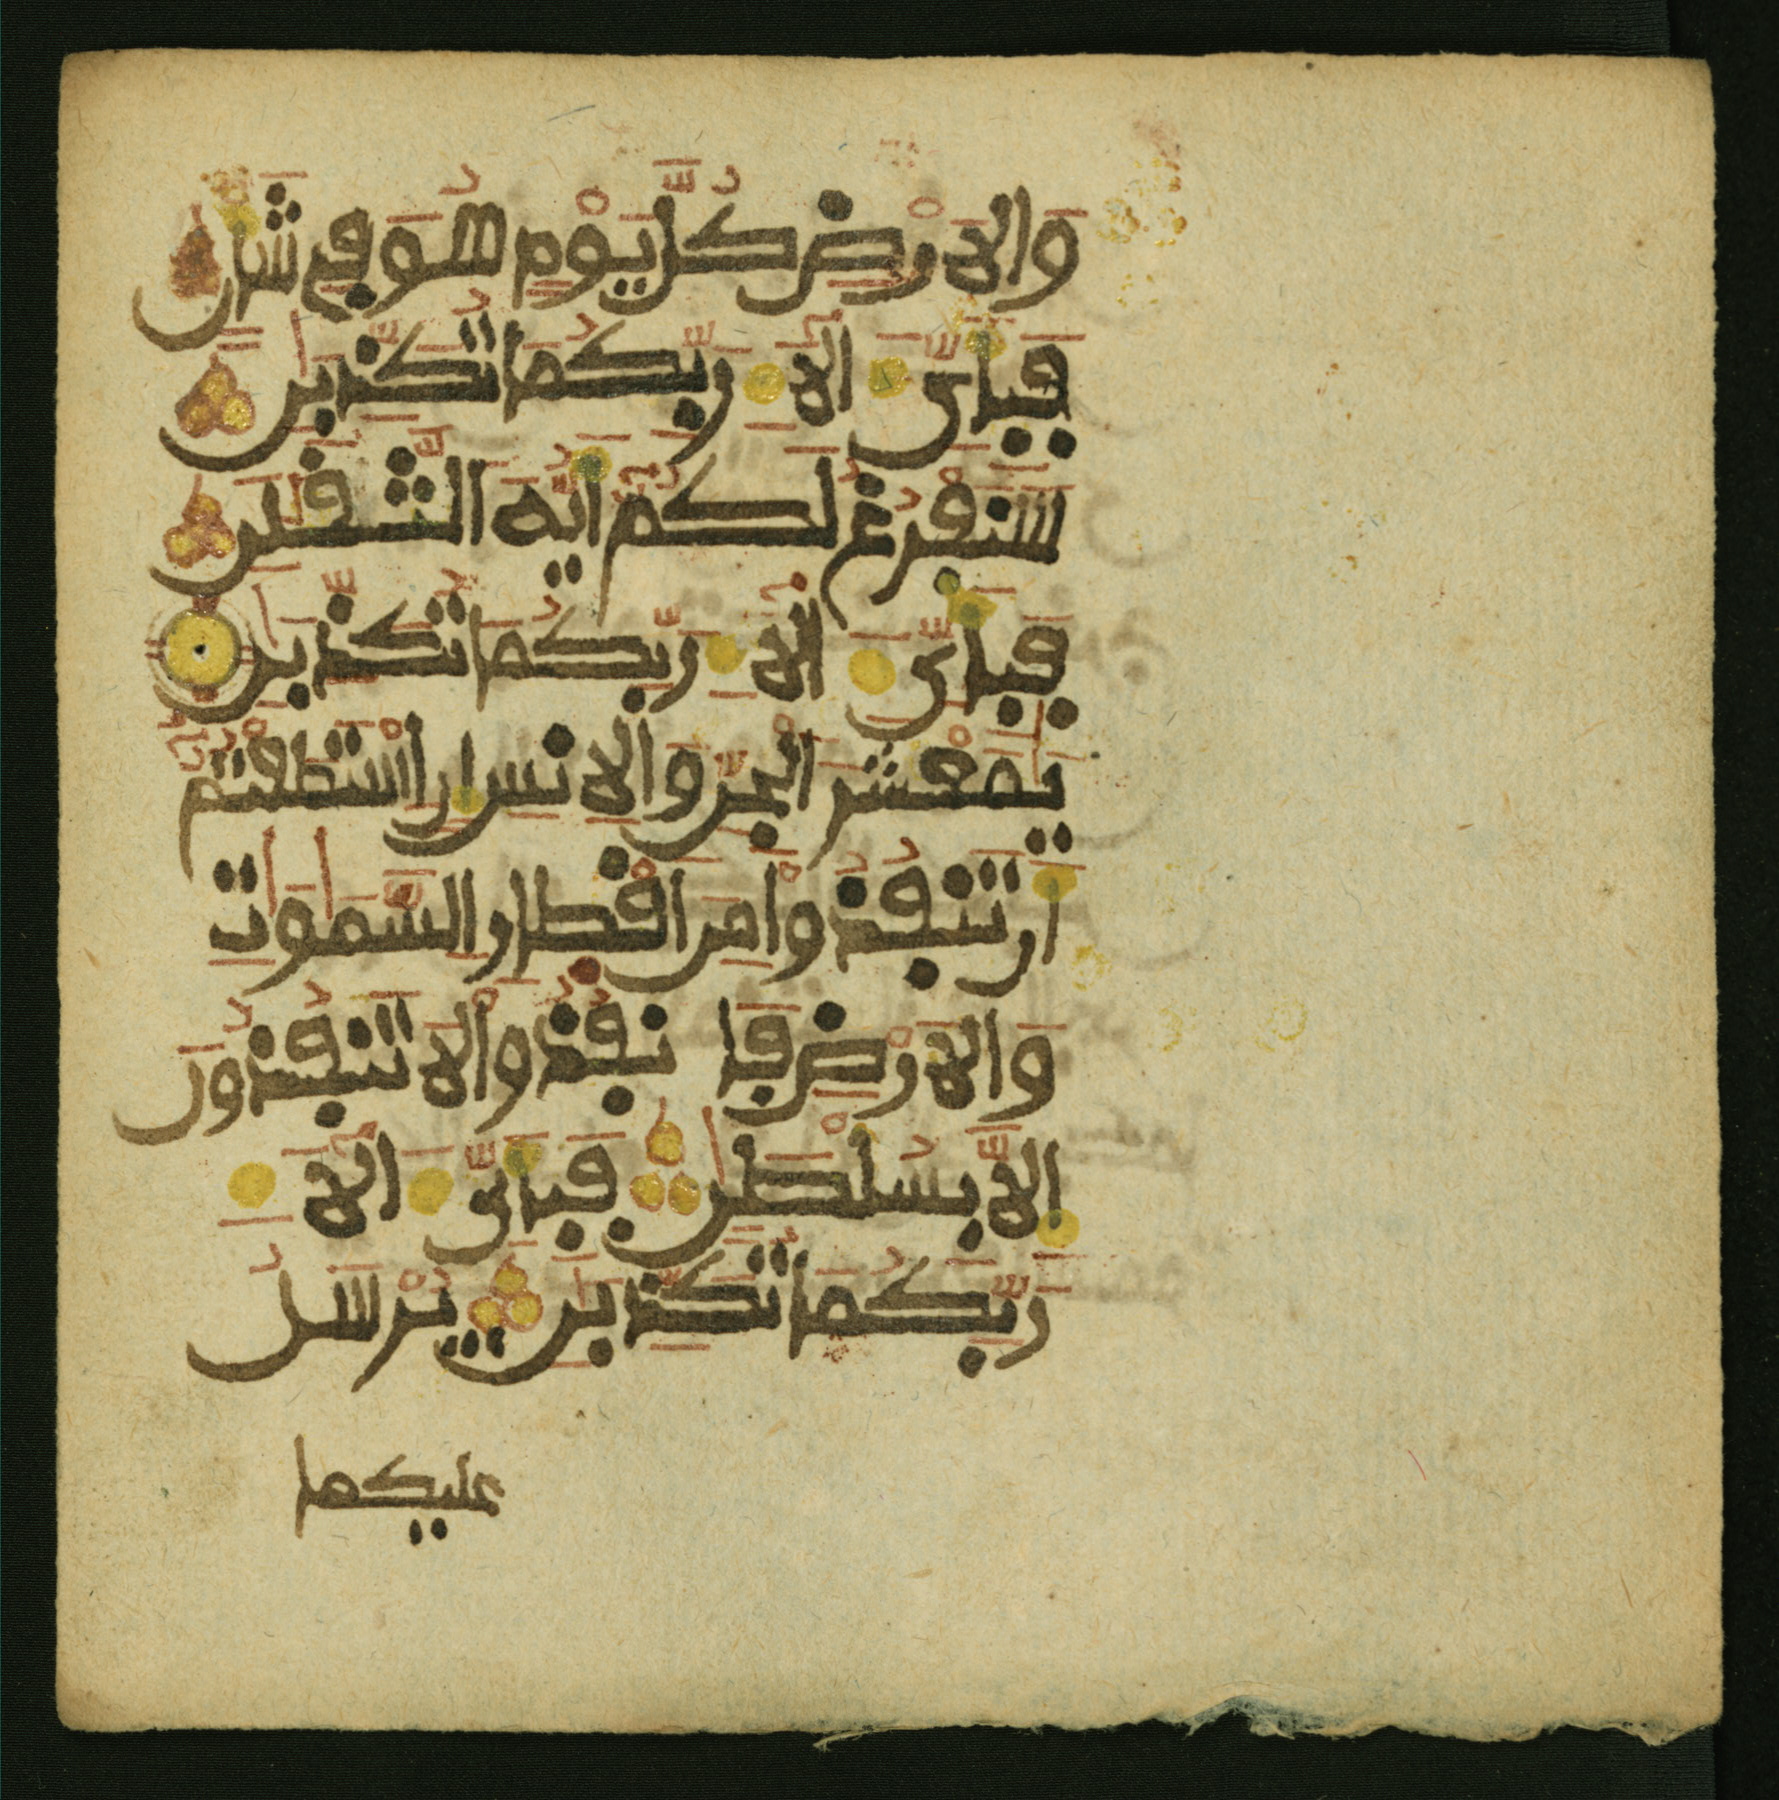 وَالَارْضِ كُلَّ يَوْمٍ هُوَ فِى شَأنٍ
فَبِأَىِّ ءَالَاءِ رَبِّكُمَا تُكَذِّبَٰنِ
سَنَفْرُغُ لَكُمُۥٓ أَيُّهَ الثَّقَلَٰنِ
فَبِأَىِّ ءَالَاءِ رَبِّكُمَا تُكَذِّبَٰنِ
يَٰمَعْشَرَ الْجِنِّ وَالِانسِ إِنِ اسْتَطَعْتُمُۥٓ
أَن تَنفُذُوا مِنَ اقْطَارِ السَّمَٰوَٰتِ
وَالَارْضِ فَانفُذُوا لَا تَنفُذُونَ
إِلَّا بِسُلْطَٰنٍ فَبِأَىِّ ءَالَاءِ
رَبِّكُمَا تُكَذِّبَٰنِ يُرْسَلُ
عليكما